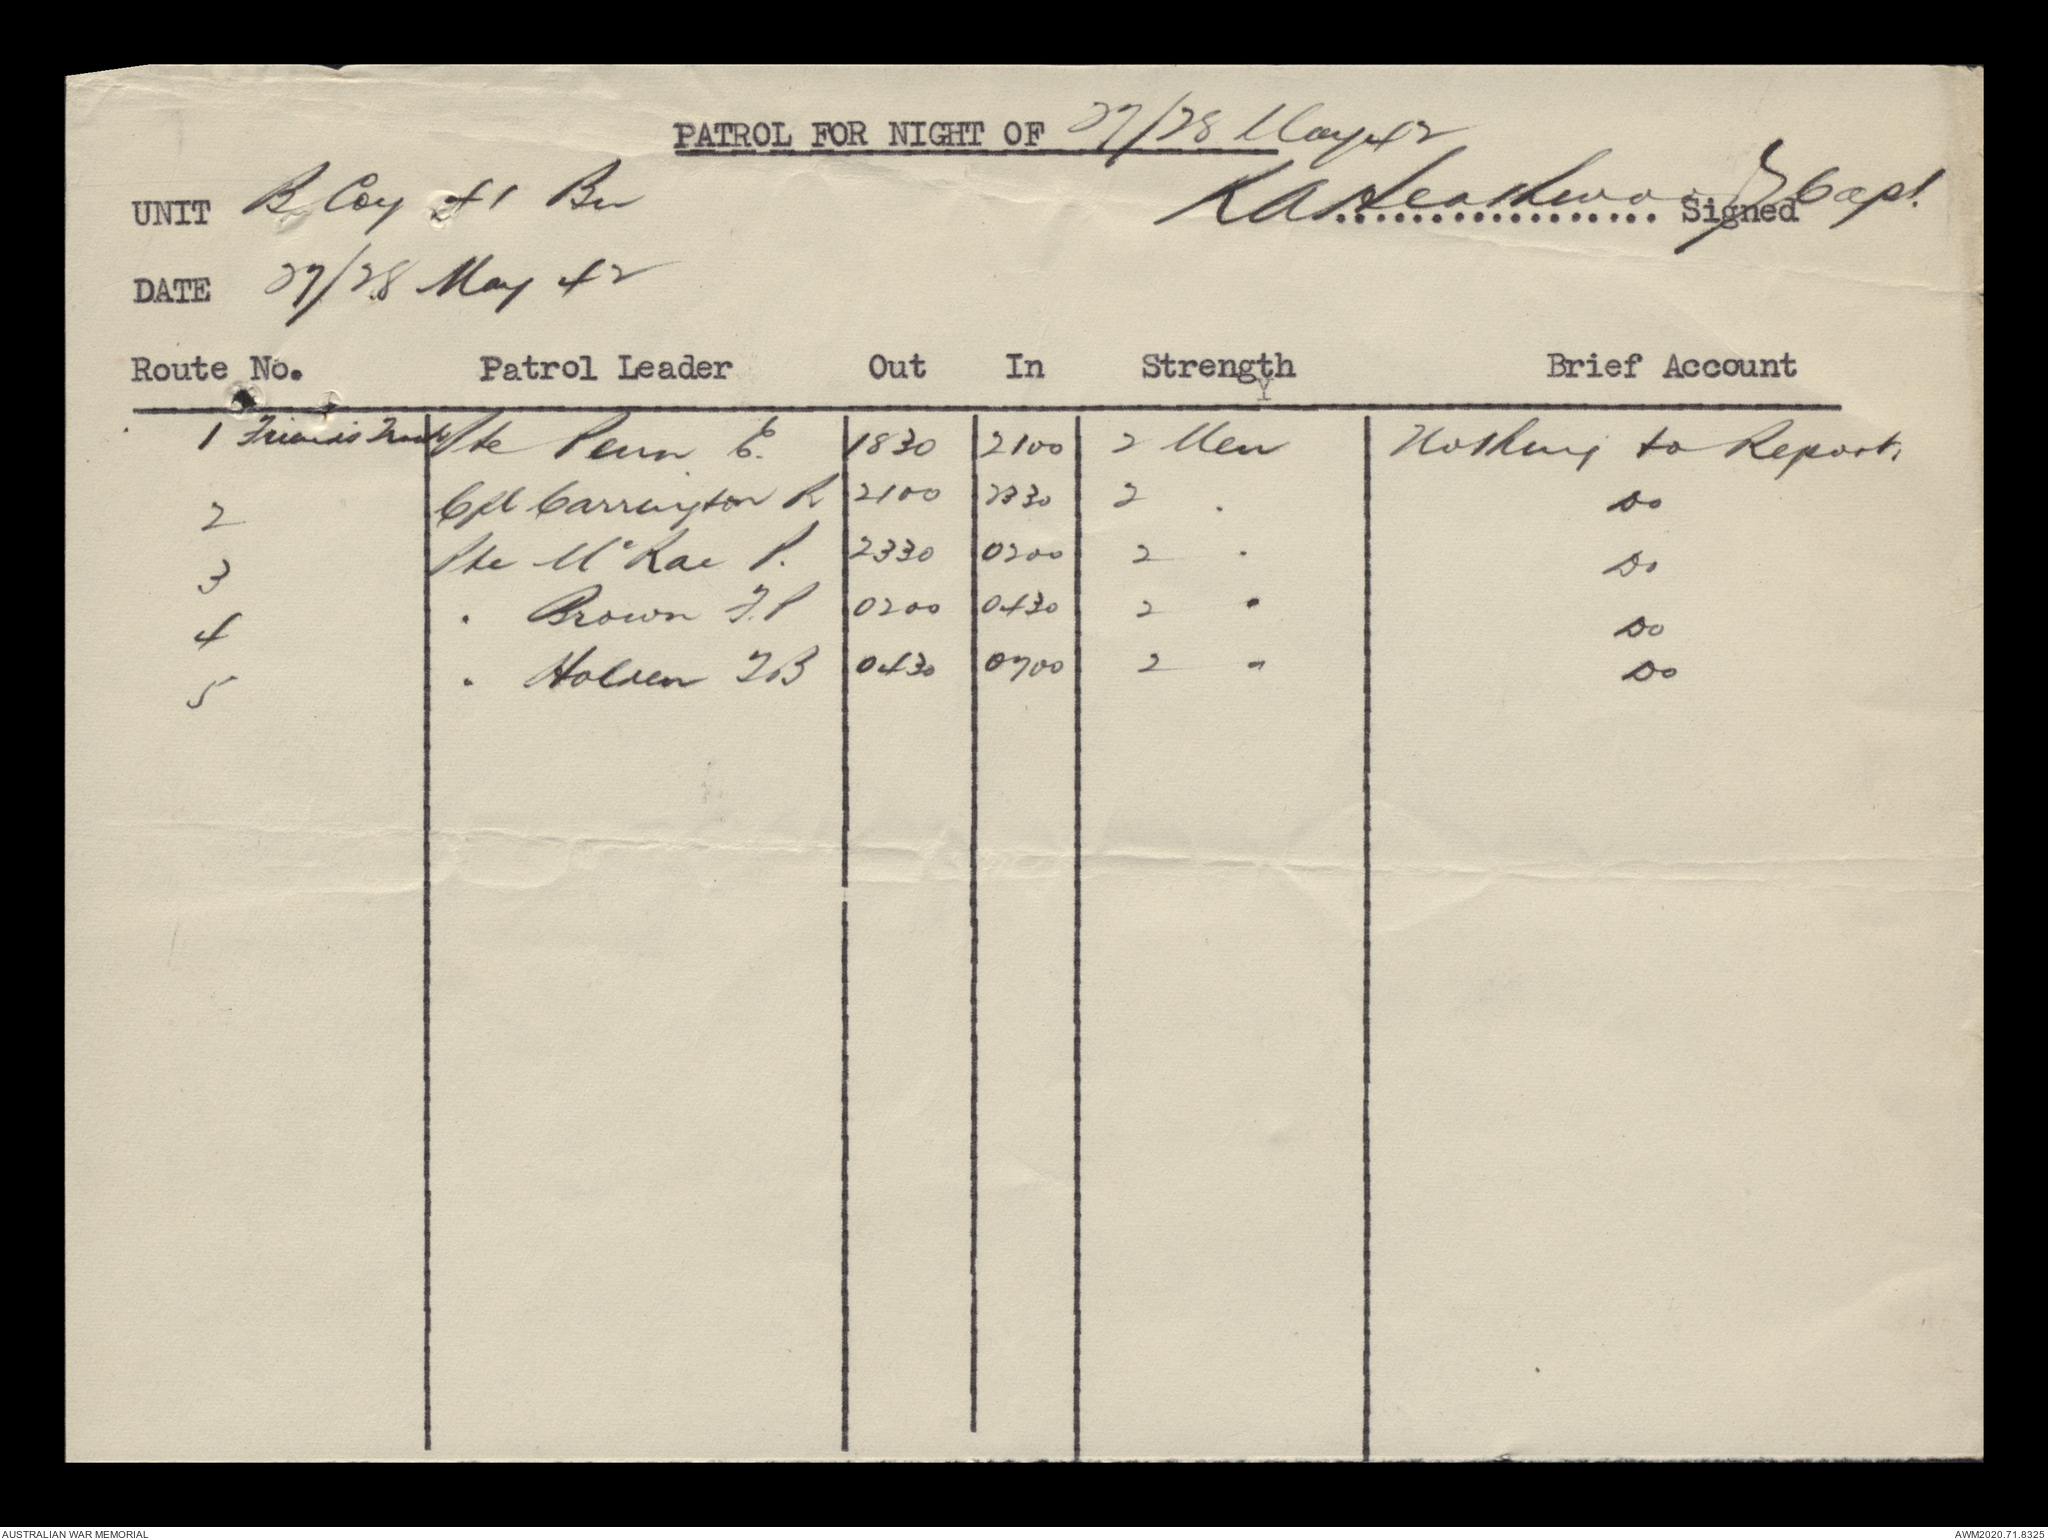 PATROL FOR NIGHT OF 27/28 May 42
UNIT B Coy 41 Bn K A Heathwood Capt. Signed
DATE 27/28 May 42
Route No. Patrol Leader Out In Strength Brief Account
1 Friends Track Pte Penn E. 1830 2100 2 Men Nothing to Report.
2 Cpl Carrington R 2100 2330 2 " Do
3 Pte McRae P. 2330 0200 2 " Do
4 " Brown F.P 0200 0430 2 " Do
5 " Holden 0430 0700 2 " Do
AUSTRALIAN WAR MEMORIAL AWM2020.71.8325